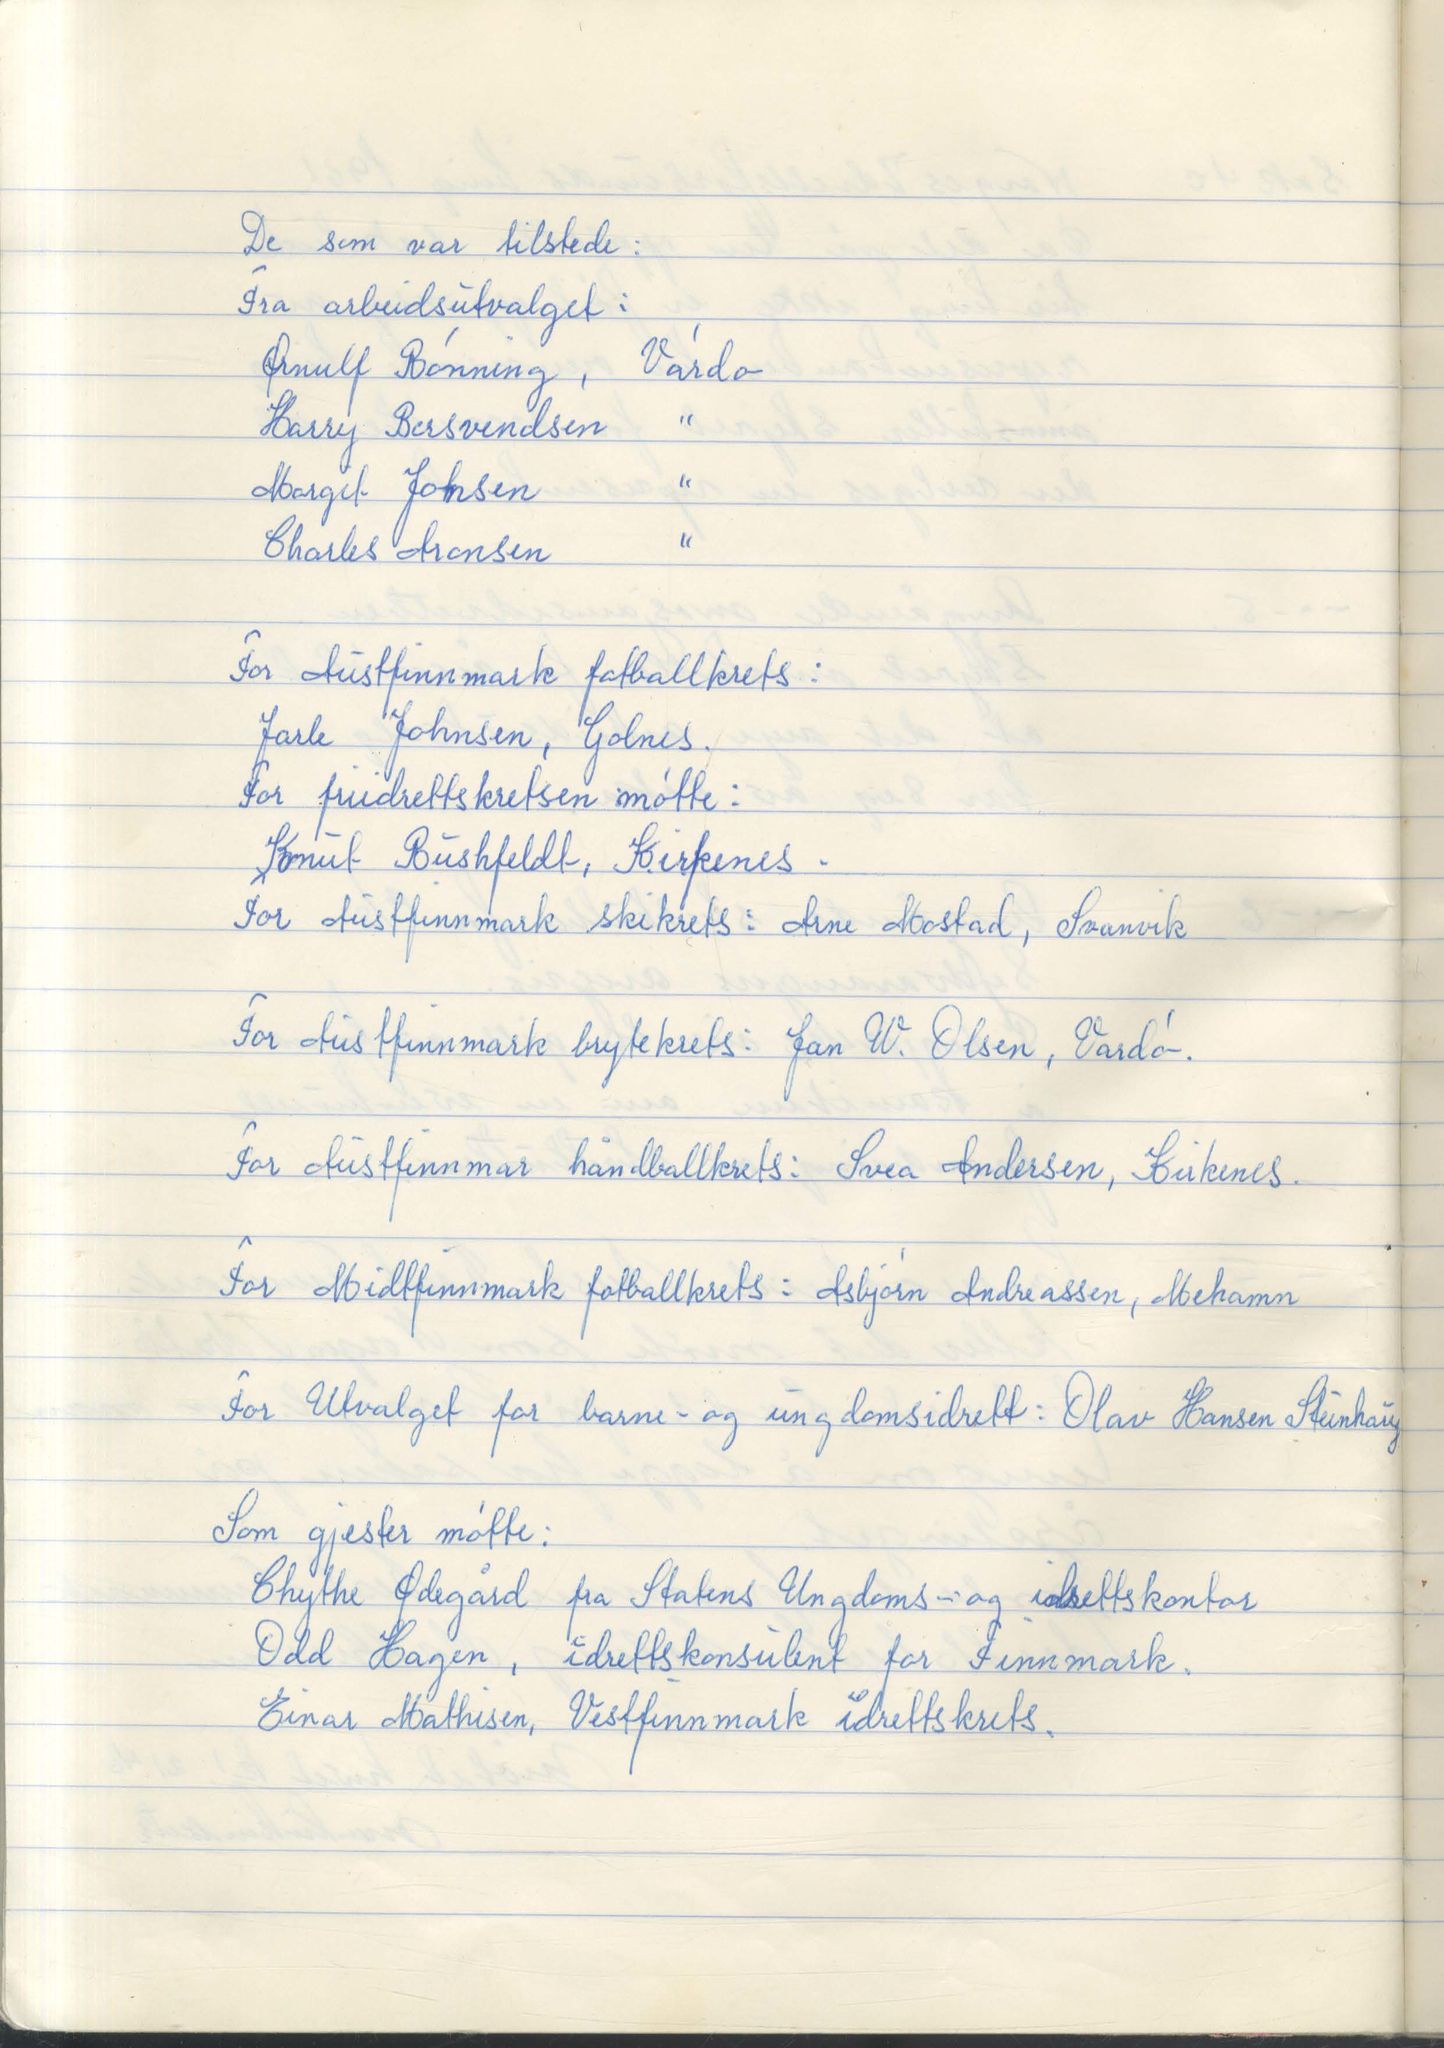 De som var tilstede:
Fra arbeidsutvalget:
Ørnulf Bønning, Vardø
Harry Bersvendsen "
Marget Johnsen "
Charles Aronsen "
For Austfinnmark fotballkrets:
Jarle Johnsen, Golnes.
For friidrettskretsen møtte:
Knut Bushfeldt, Kirkenes.
For Austfinnmark skikrets: Arne Mostad, Svanvik
For Austfinnmark brytekrets: Jan W. Olsen, Vardø.
For Austfinnmar håndballkrets: Svea Andersen, Kirkenes.
For Midtfinnmark fotballkrets: Asbjørn Andreassen, Mehamn
For Utvalget for barne- og ungdomsidrett: Olav Hansen Steinhaug
Som gjester møtte:
Chythe Ødegård fra Statens Ungdoms- og idrettskontor
Odd Hagen, idrettskonsulent for Finnmark.
Einar Mathisen, Vestfinnmark idrettskrets.